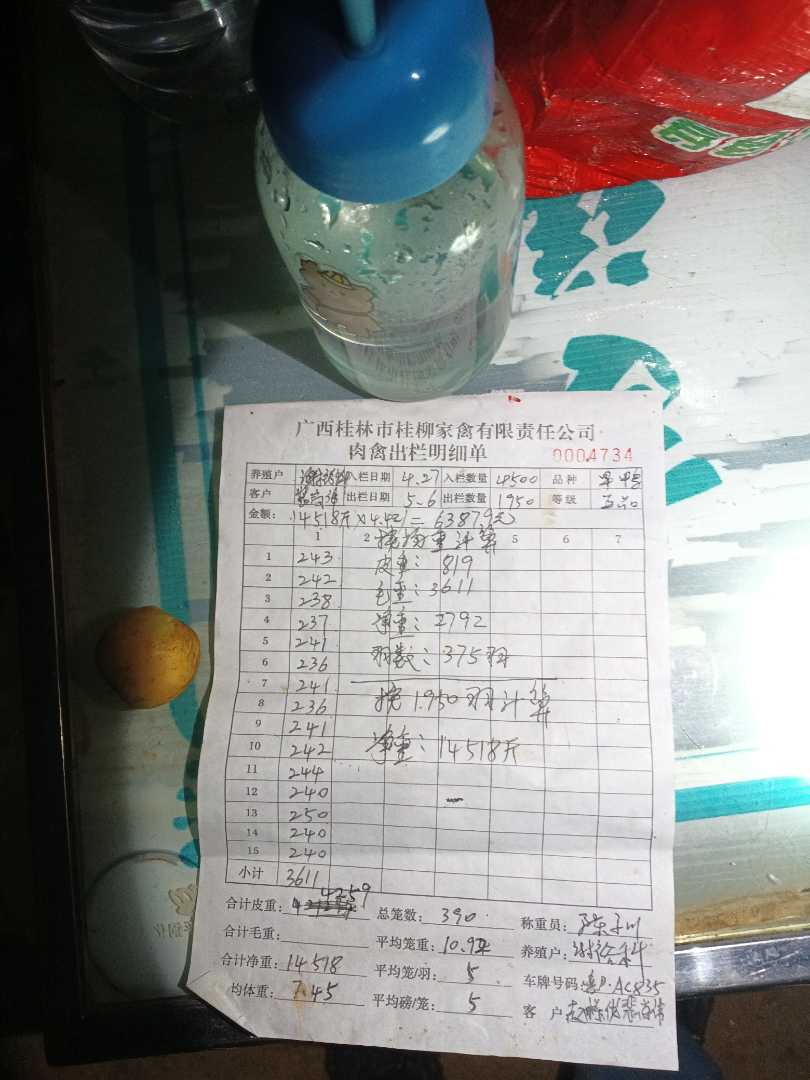 广西桂林市桂柳家禽有限责任公司
肉禽出栏明细单 0004734
养殖户 入栏日期 4.27 入栏数量 4500 品种
客户 出栏日期 5.6 出栏数量 1950 等级
金额: 14518斤×4.4元=63879元
1 2 按均重计算 5 6 7
1 243 皮重: 819
2 242 毛重: 3611
3 238
4 237 净重: 2792
5 241
6 236 羽数: 375羽
7 241
8 236 按1950羽计算
9 241
10 242 净重: 14518斤
11 244
12 240
13 250
14 240
15 240
小计 3611
合计皮重: 4259 总笼数: 390 称重员:
合计毛重: 平均笼重: 10.92 养殖户:
合计净重: 14518 平均笼/羽: 5 车牌号码: AC835
均体重: 7.45 平均磅/笼: 5 客户